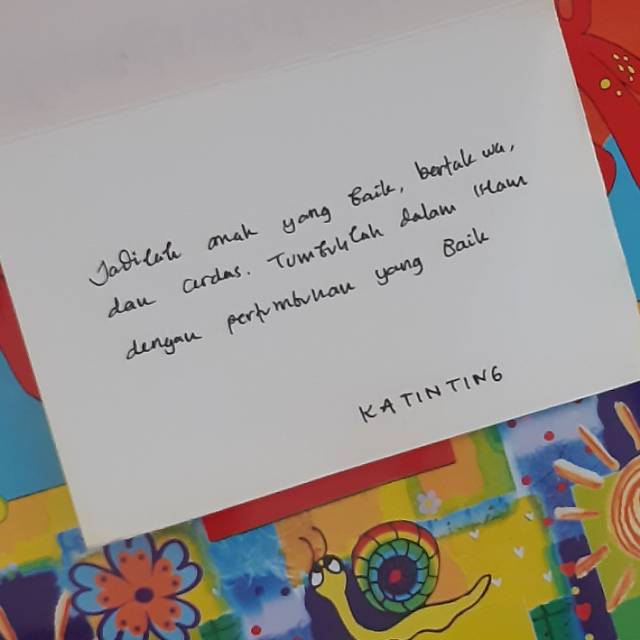 Jadilah anak yang Baik, bertakwa,
dan cerdas. Tumbuhlah dalam Islam
dengan pertumbuhan yang Baik
KATINTING